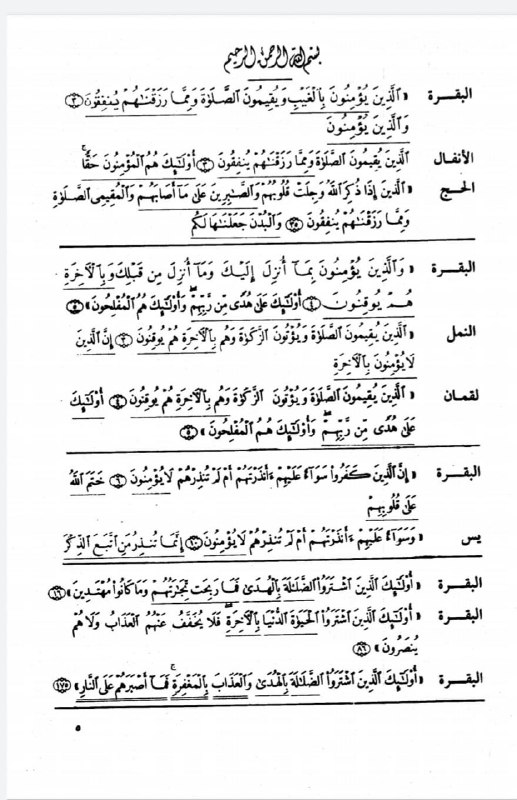 بسم الله الرحمن الرحيم
البقرة « ٱلَّذِينَ يُؤْمِنُونَ بِٱلْغَيْبِ وَيُقِيمُونَ ٱلصَّلَوٰةَ وَمِمَّا رَزَقْنَـٰهُمْ يُنفِقُونَ ٣
وَٱلَّذِينَ يُؤْمِنُونَ
الأنفال ٱلَّذِينَ يُقِيمُونَ ٱلصَّلَوٰةَ وَمِمَّا رَزَقْنَـٰهُمْ يُنفِقُونَ ٣ أُوْلَـٰٓئِكَ هُمُ ٱلْمُؤْمِنُونَ حَقًّا
الحج « ٱلَّذِينَ إِذَا ذُكِرَ ٱللَّهُ وَجِلَتْ قُلُوبُهُمْ وَٱلصَّـٰبِرِينَ عَلَىٰ مَآ أَصَابَهُمْ وَٱلْمُقِيمِى ٱلصَّلَوٰةِ
وَمِمَّا رَزَقْنَـٰهُمْ يُنفِقُونَ ٣٥ وَٱلْبُدْنَ جَعَلْنَـٰهَا لَكُم
البقرة « وَٱلَّذِينَ يُؤْمِنُونَ بِمَآ أُنزِلَ إِلَيْكَ وَمَآ أُنزِلَ مِن قَبْلِكَ وَبِٱلْـَٔاخِرَةِ
هُمْ يُوقِنُونَ ٤ أُوْلَـٰٓئِكَ عَلَىٰ هُدًى مِّن رَّبِّهِمْ وَأُوْلَـٰٓئِكَ هُمُ ٱلْمُفْلِحُونَ » ٥
النمل « ٱلَّذِينَ يُقِيمُونَ ٱلصَّلَوٰةَ وَيُؤْتُونَ ٱلزَّكَوٰةَ وَهُم بِٱلْـَٔاخِرَةِ هُمْ يُوقِنُونَ ٣ إِنَّ ٱلَّذِينَ
لَا يُؤْمِنُونَ بِٱلْـَٔاخِرَةِ
لقمان « ٱلَّذِينَ يُقِيمُونَ ٱلصَّلَوٰةَ وَيُؤْتُونَ ٱلزَّكَوٰةَ وَهُم بِٱلْـَٔاخِرَةِ هُمْ يُوقِنُونَ ٤ أُوْلَـٰٓئِكَ
عَلَىٰ هُدًى مِّن رَّبِّهِمْ وَأُوْلَـٰٓئِكَ هُمُ ٱلْمُفْلِحُونَ » ٥
البقرة « إِنَّ ٱلَّذِينَ كَفَرُواْ سَوَآءٌ عَلَيْهِمْ ءَأَنذَرْتَهُمْ أَمْ لَمْ تُنذِرْهُمْ لَا يُؤْمِنُونَ ٦ خَتَمَ ٱللَّهُ
عَلَىٰ قُلُوبِهِمْ
يس « وَسَوَآءٌ عَلَيْهِمْ ءَأَنذَرْتَهُمْ أَمْ لَمْ تُنذِرْهُمْ لَا يُؤْمِنُونَ ١٠ إِنَّمَا تُنذِرُ مَنِ ٱتَّبَعَ ٱلذِّكْرَ
البقرة « أُوْلَـٰٓئِكَ ٱلَّذِينَ ٱشْتَرَوُاْ ٱلضَّلَـٰلَةَ بِٱلْهُدَىٰ فَمَا رَبِحَت تِّجَـٰرَتُهُمْ وَمَا كَانُواْ مُهْتَدِينَ » ١٦
البقرة « أُوْلَـٰٓئِكَ ٱلَّذِينَ ٱشْتَرَوُاْ ٱلْحَيَوٰةَ ٱلدُّنْيَا بِٱلْـَٔاخِرَةِ فَلَا يُخَفَّفُ عَنْهُمُ ٱلْعَذَابُ وَلَا هُمْ
يُنصَرُونَ » ٨٦
البقرة « أُوْلَـٰٓئِكَ ٱلَّذِينَ ٱشْتَرَوُاْ ٱلضَّلَـٰلَةَ بِٱلْهُدَىٰ وَٱلْعَذَابَ بِٱلْمَغْفِرَةِ فَمَآ أَصْبَرَهُمْ عَلَى ٱلنَّارِ » ١٧٥
٥